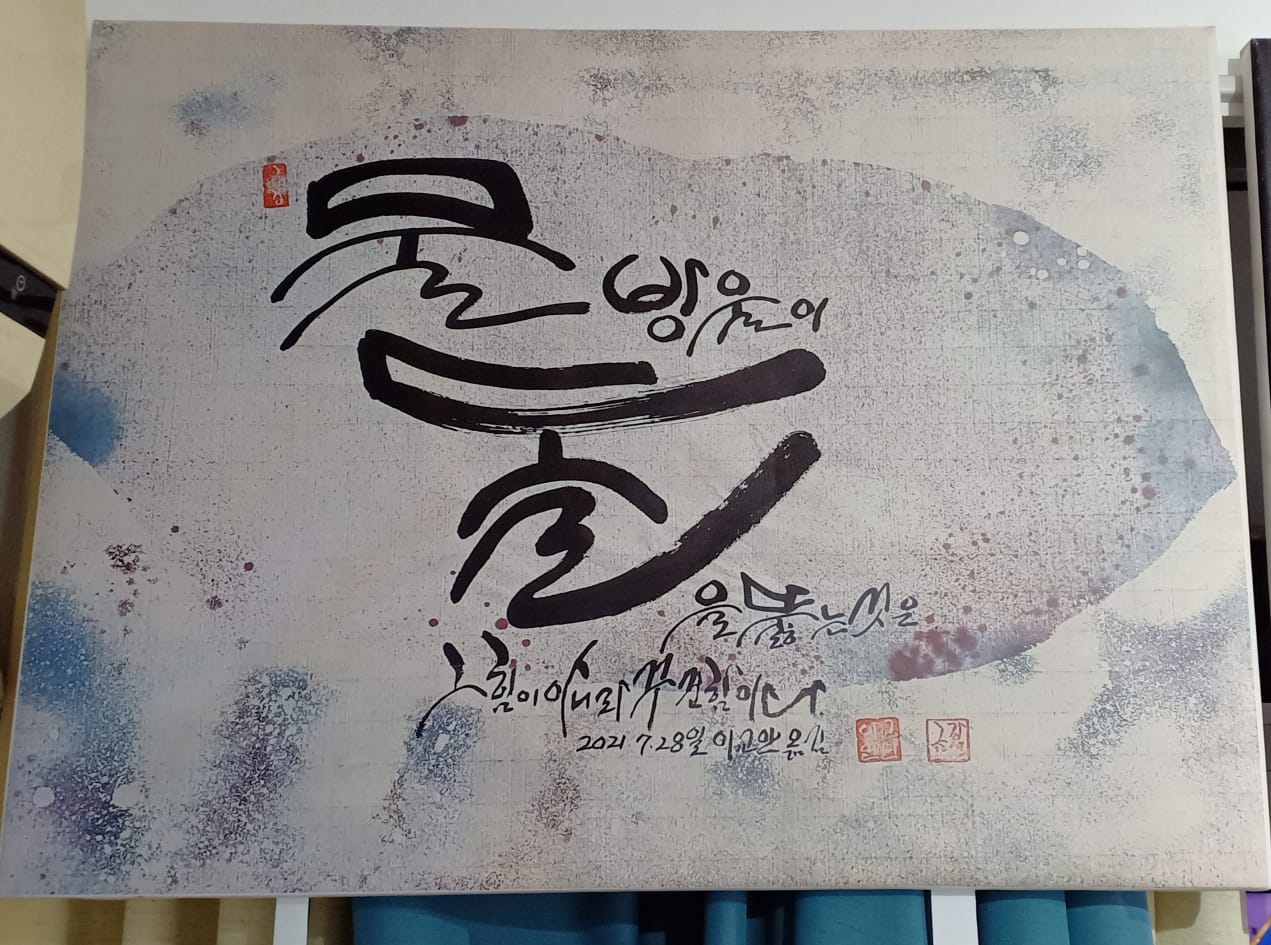 물방울이
돌을 뚫는 것은
그 힘이 아니라 꾸준함이다
2021 7.28일 옮김